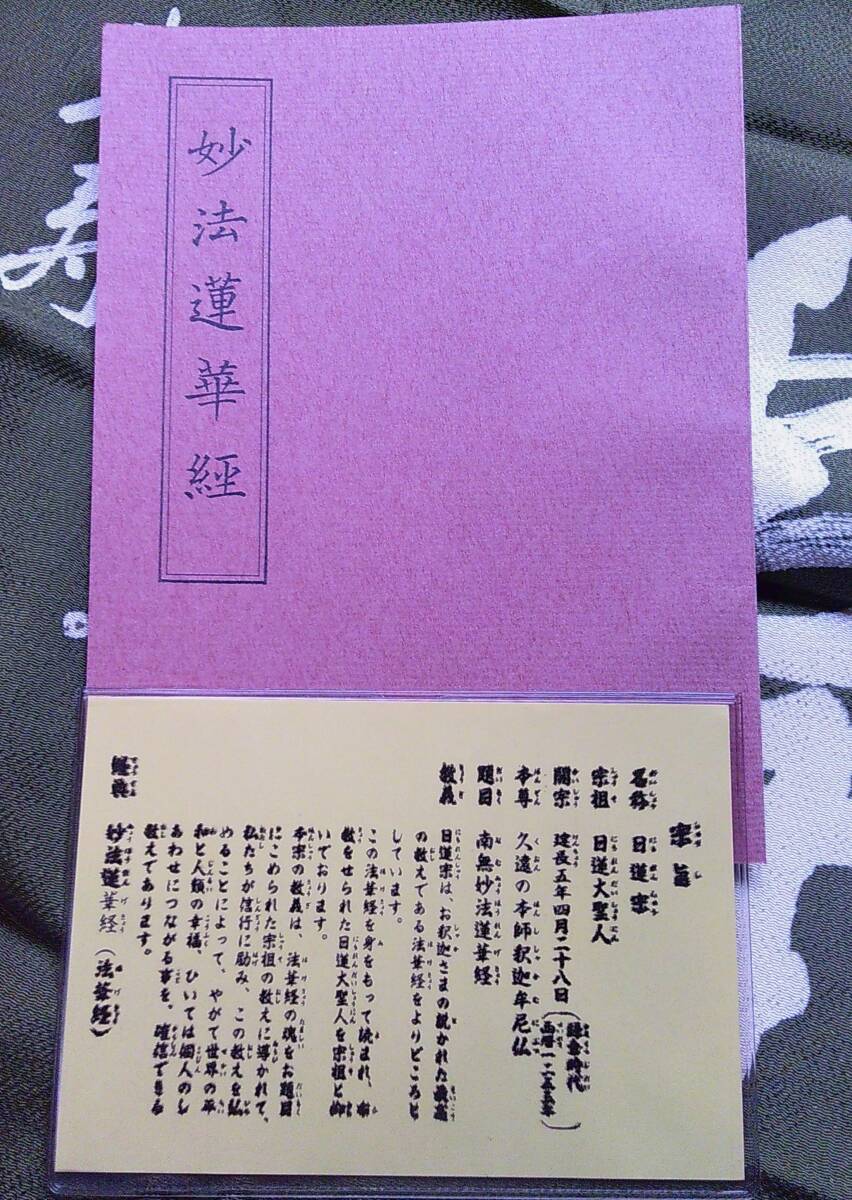 妙法蓮華經
宗旨
名称 日蓮宗
宗祖 日蓮大聖人
開宗 建長五年四月二十八日（鎌倉時代 西暦一二五三年）
本尊 久遠の本師釈迦牟尼仏
題目 南無妙法蓮華経
教義 日蓮宗は、お釈迦さまの説かれた最高
の教えである法華経をよりどころと
しています。
この法華経を身をもって読まれ、布
教をせられた日蓮大聖人を宗祖と仰
いでおります。
本宗の教義は、法華経の魂をお題目
にこめられた宗祖の教えに導かれて、
私たちが信行に励み、この教えを弘
めることによって、やがて世界の平
和と人類の幸福、ひいては個人のし
あわせにつながる事を、確信できる
教えであります。
経典 妙法蓮華経（法華経）